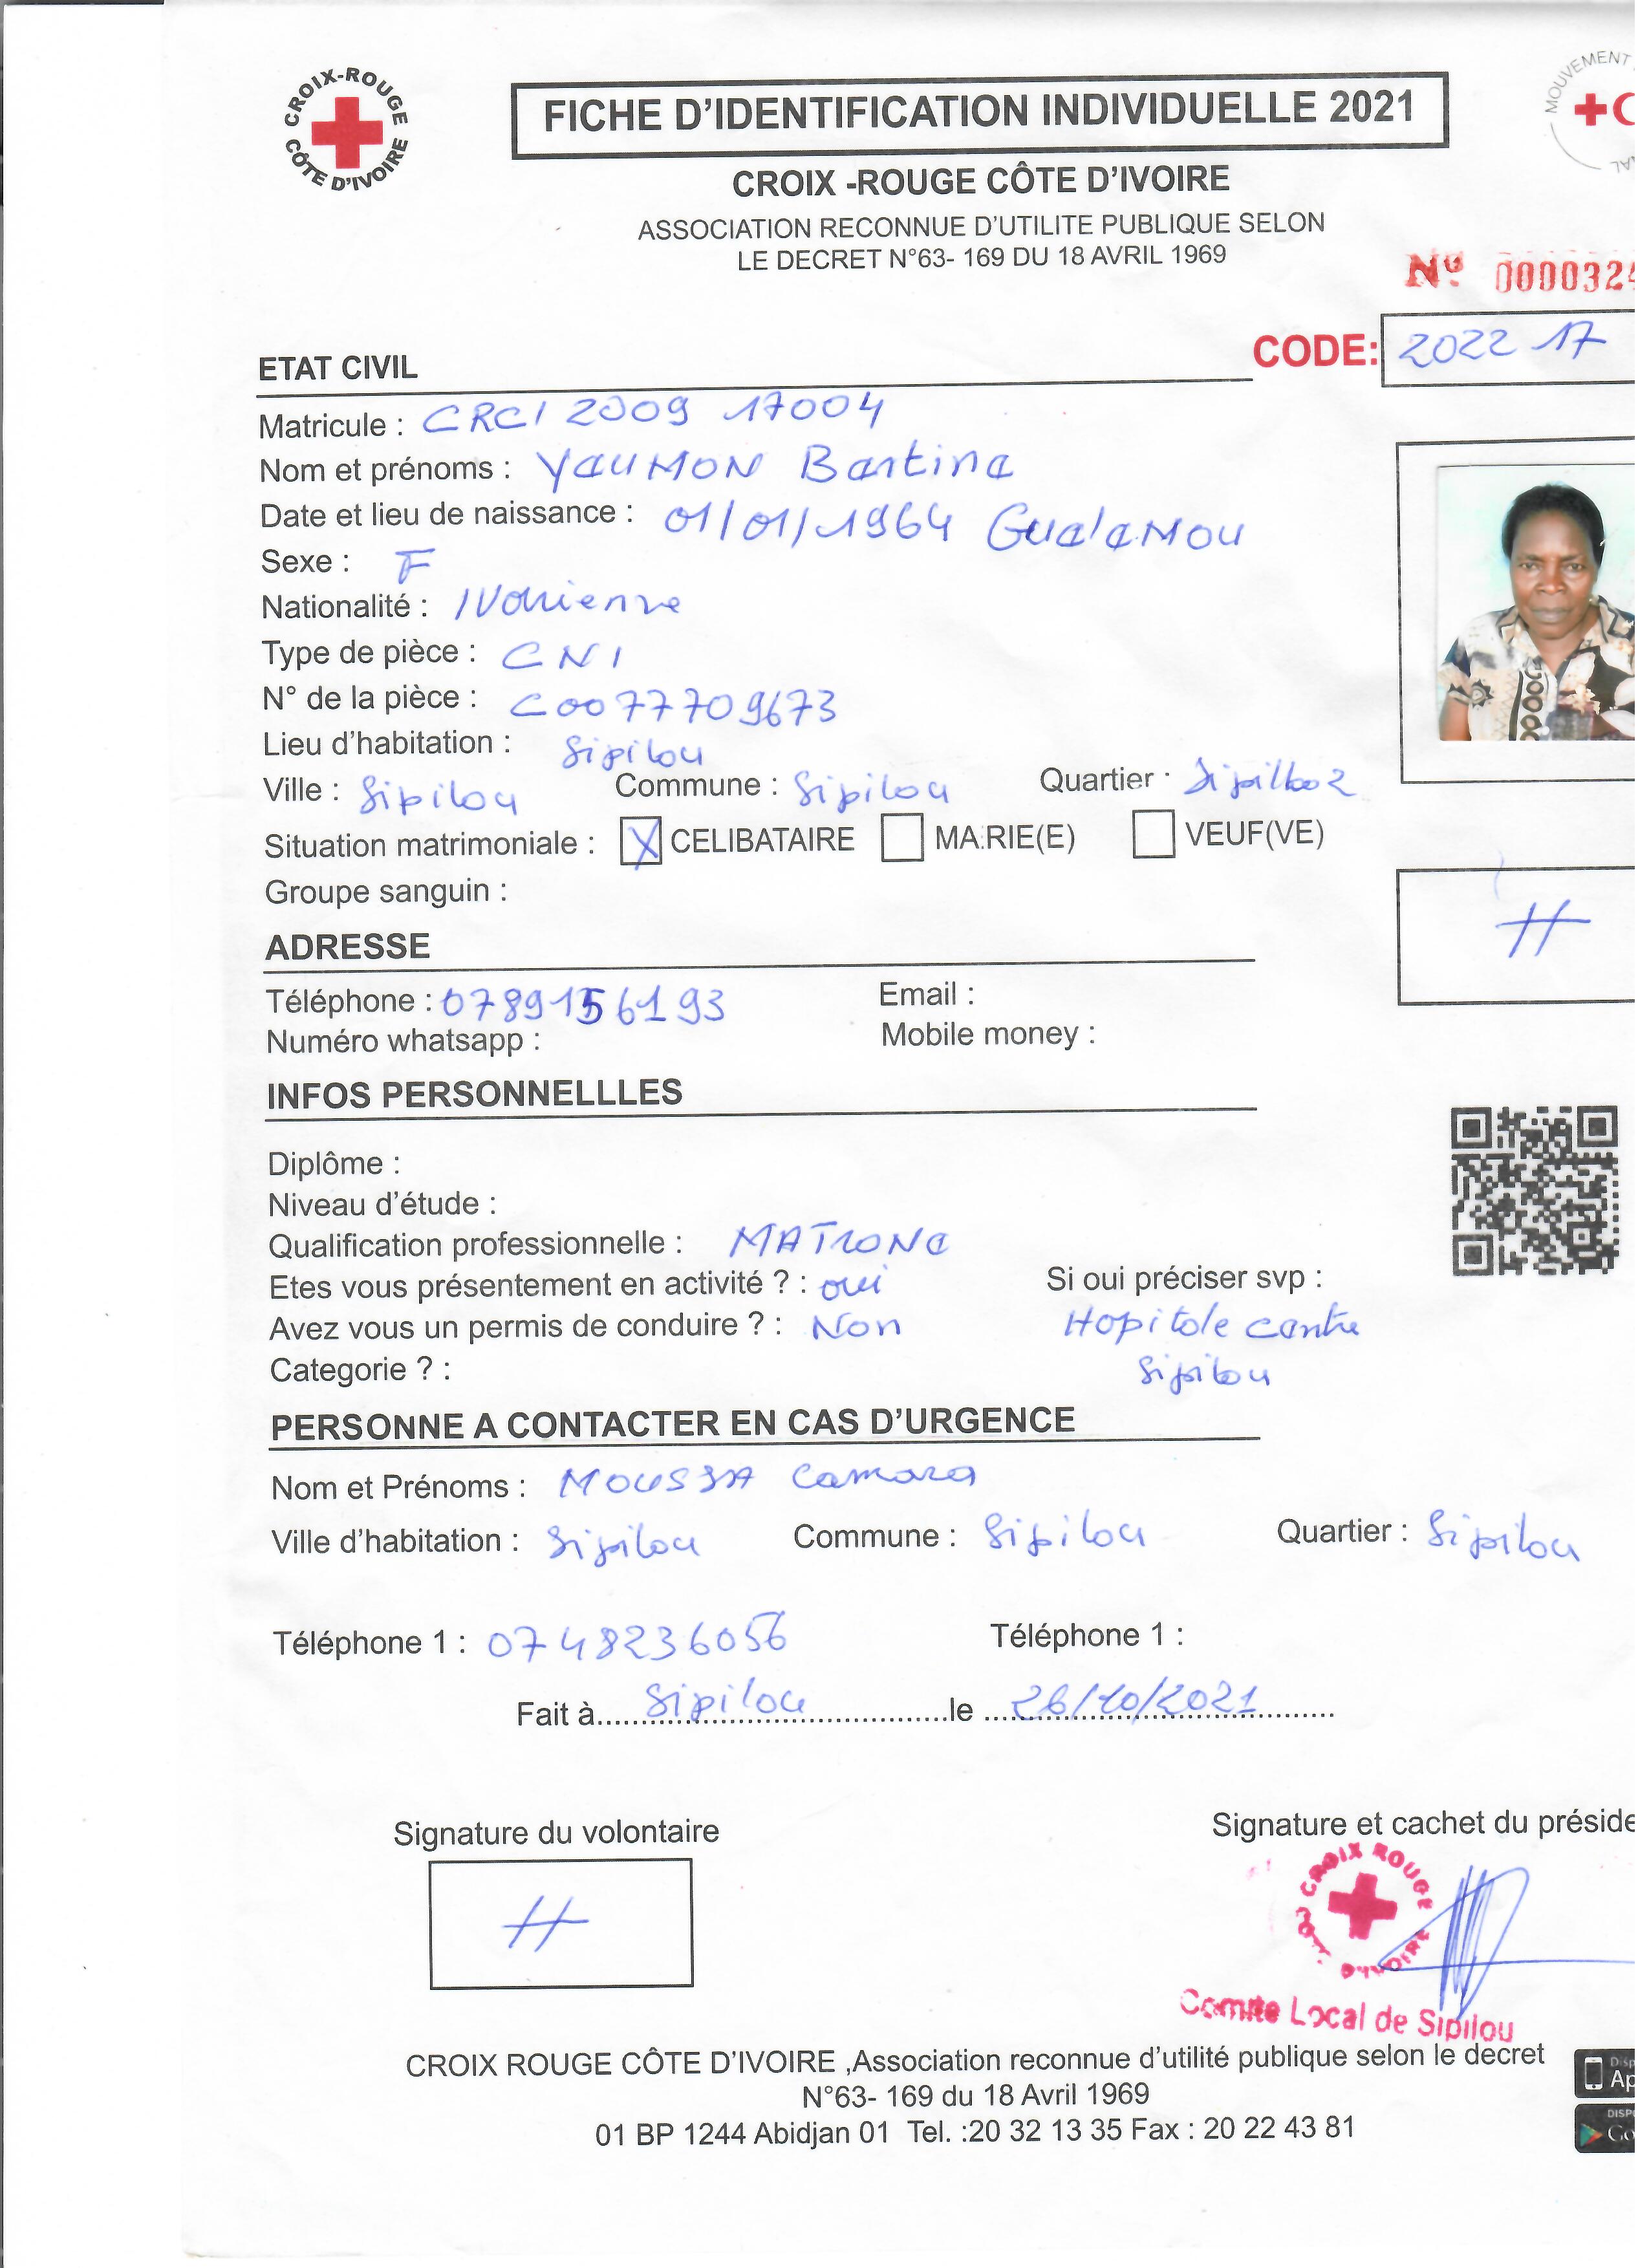 CROIX-ROUGE
CÔTE D'IVOIRE
FICHE D'IDENTIFICATION INDIVIDUELLE 2021
MOUVEMENT
CROIX -ROUGE CÔTE D'IVOIRE
ASSOCIATION RECONNUE D'UTILITE PUBLIQUE SELON
LE DECRET N°63- 169 DU 18 AVRIL 1969
N° 0000324
CODE: 2022 17
ETAT CIVIL
Matricule : CRCI 2009 17004
Nom et prénoms : YAUMON Bertine
Date et lieu de naissance : 01/01/1964 GUALAMOU
Sexe : F
Nationalité : Ivoirienne
Type de pièce : CNI
N° de la pièce : C0077709673
Lieu d'habitation : Sipilou
Ville : Sipilou Commune : Sipilou Quartier : Sipilou2
Situation matrimoniale : X CELIBATAIRE MARIE(E) VEUF(VE)
Groupe sanguin :
ADRESSE
Téléphone : 0789156193 Email :
Numéro whatsapp : Mobile money :
INFOS PERSONNELLLES
Diplôme :
Niveau d'étude :
Qualification professionnelle : MATRONE
Etes vous présentement en activité ? : oui Si oui préciser svp :
Avez vous un permis de conduire ? : Non Hopitole centre
Categorie ? : Sipilou
PERSONNE A CONTACTER EN CAS D'URGENCE
Nom et Prénoms : MOUSSA Camara
Ville d'habitation : Sipilou Commune : Sipilou Quartier : Sipilou
Téléphone 1 : 0748236056 Téléphone 1 :
Fait à Sipilou le 26/10/2021
Signature du volontaire Signature et cachet du préside
CROIX ROUGE
D'IVOIRE
Comite Local de Sipilou
CROIX ROUGE CÔTE D'IVOIRE ,Association reconnue d'utilité publique selon le decret
N°63- 169 du 18 Avril 1969
01 BP 1244 Abidjan 01 Tel. :20 32 13 35 Fax : 20 22 43 81